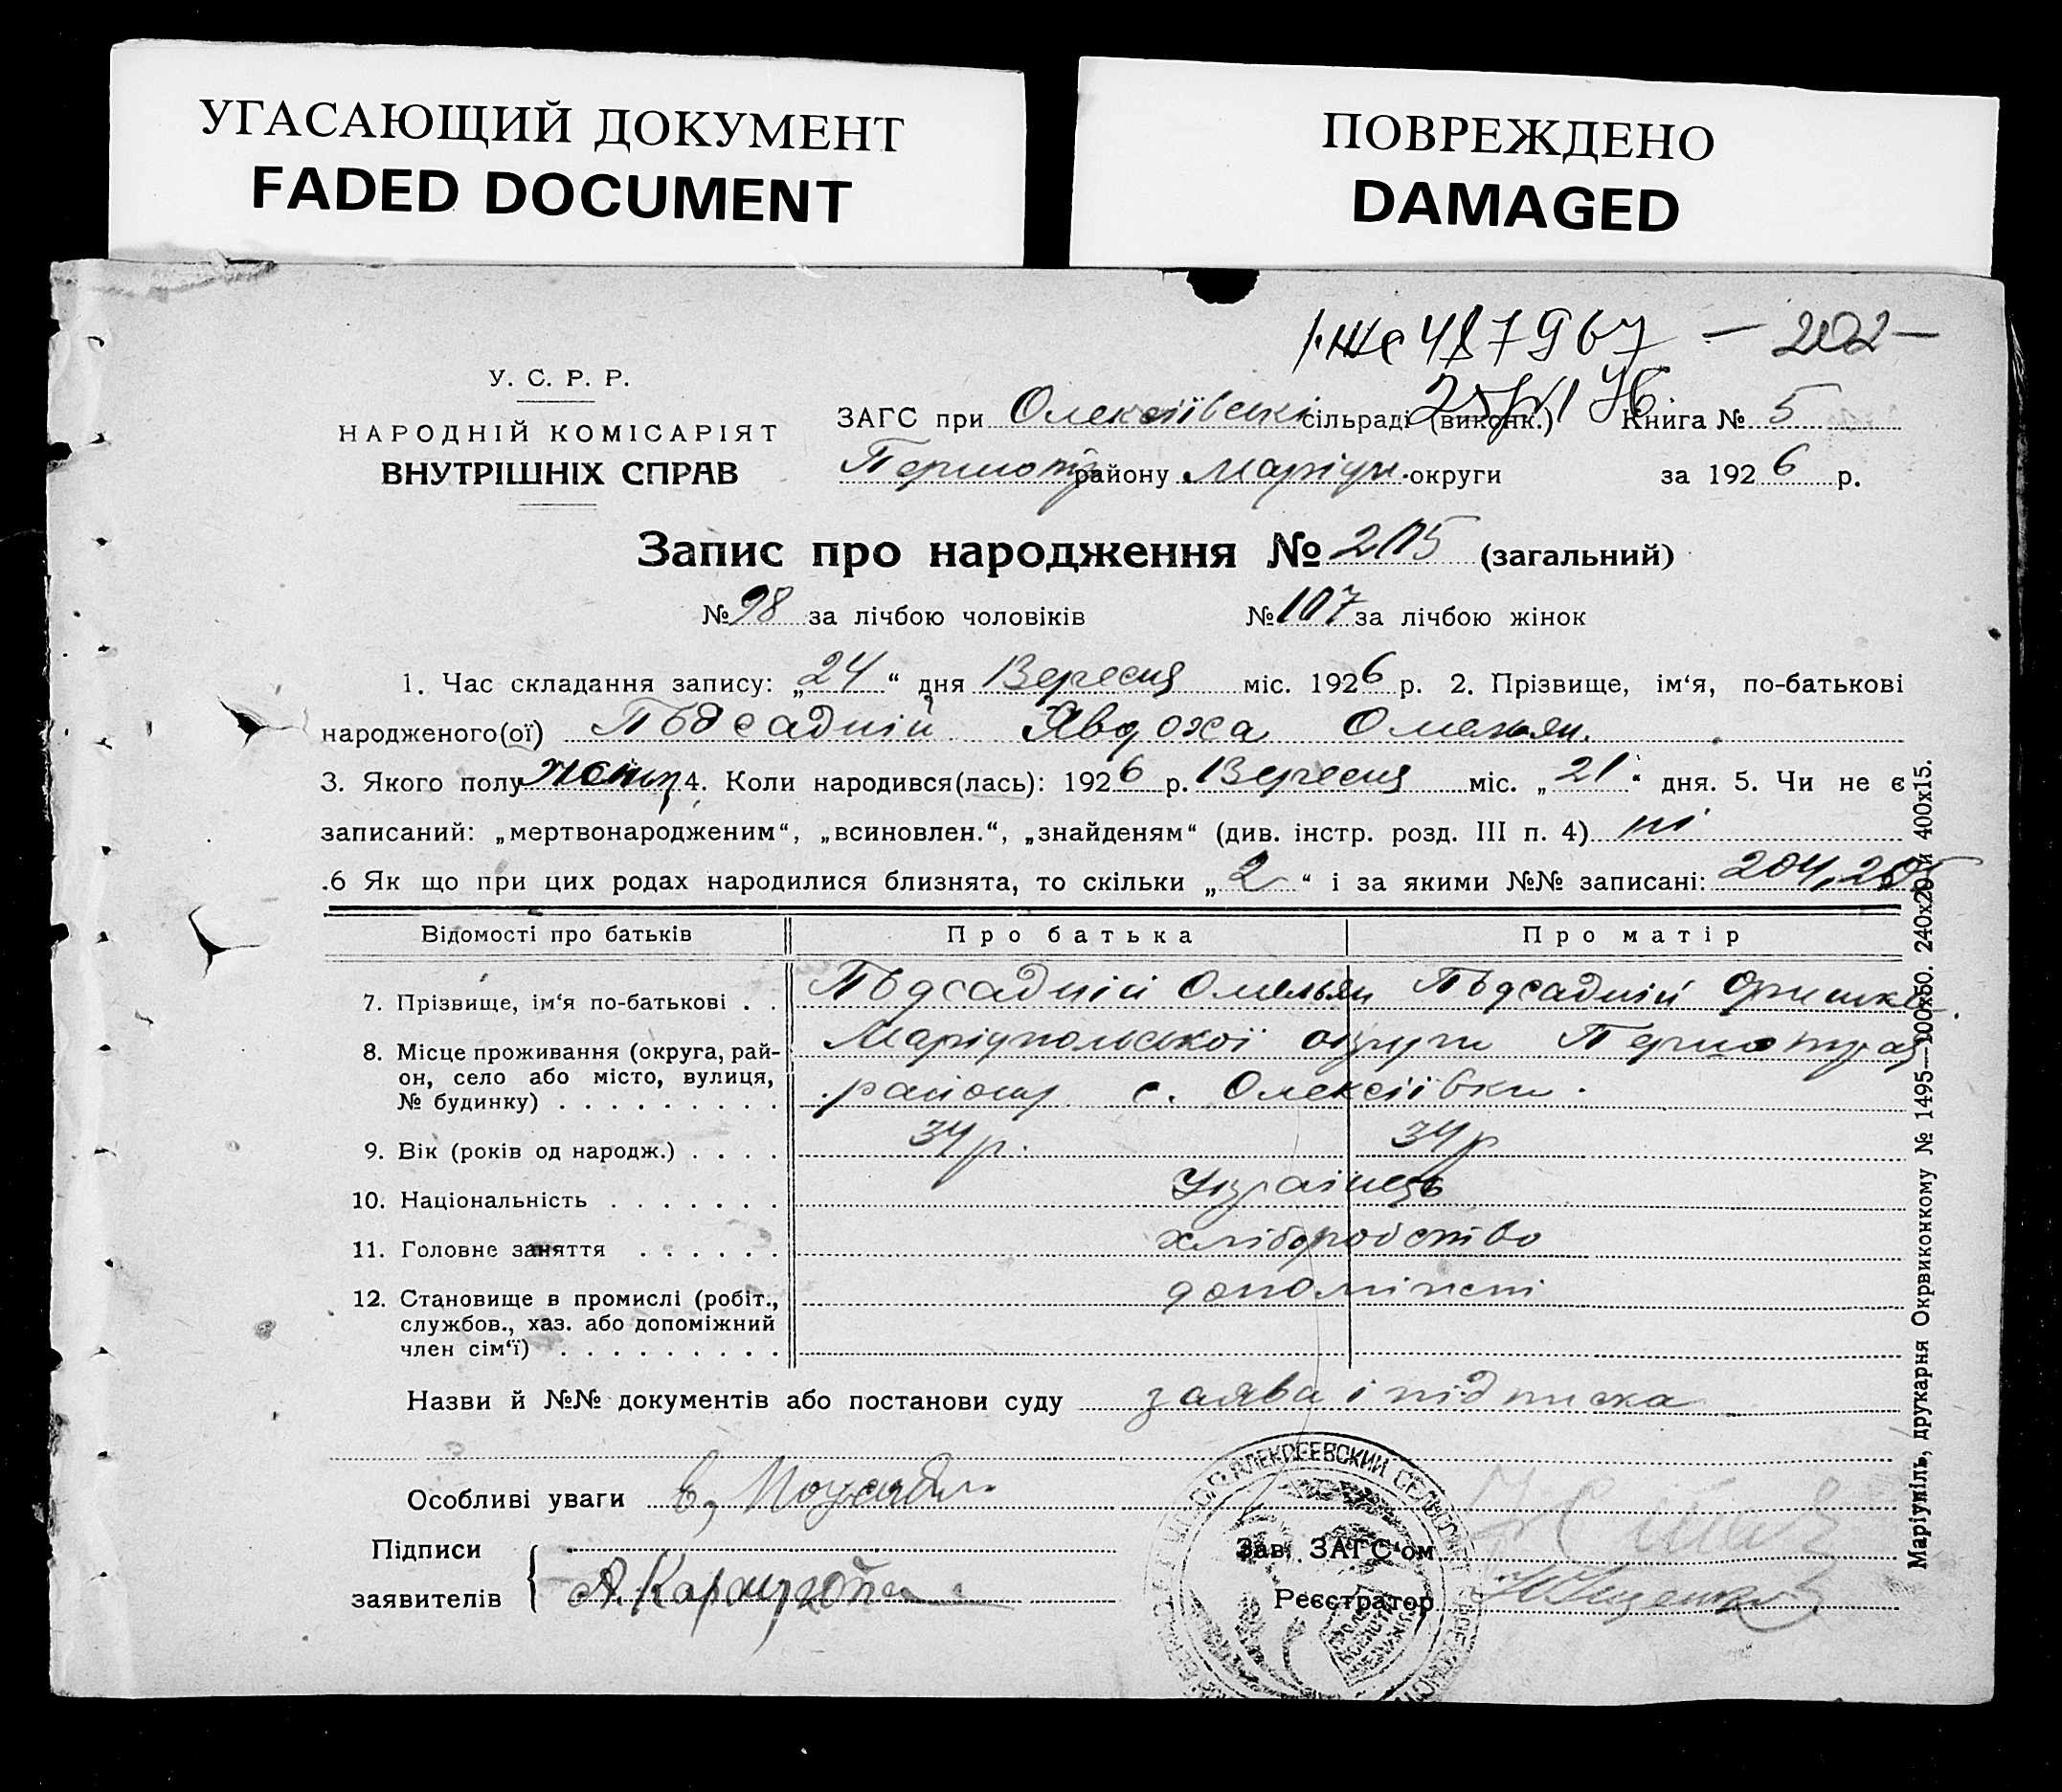 УГАСАЮЩИЙ ДОКУМЕНТ
FADED DOCUMENT
ПОВРЕЖДЕНО
DAMAGED
487967 — 202 —
У. С. Р. Р.
НАРОДНІЙ КОМІСАРІЯТ
ВНУТРІШНІХ СПРАВ
ЗАГС при Олексіївські сільраді (виконк.) Книга № 5
району Маріуп. округи за 1926 р.
Запис про народження № 205 (загальний)
№ 98 за лічбою чоловіків № 107 за лічбою жінок
1. Час складання запису: „24“ дня Вересня міс. 1926 р. 2. Прізвище, ім‘я, по-батькові
народженого(ої) Підсадній Явдоха Омельян.
3. Якого полу жіноч 4. Коли народився(лась): 1926 р. Вересня міс. „21“ дня. 5. Чи не є
записаний: „мертвонародженим“, „всиновлен.“, „знайденям“ (див. інстр. розд. III п. 4) ні
.6 Як що при цих родах народилися близнята, то скільки „2“ і за якими №№ записані: 204, 205
Відомості про батьків Про батька Про матір
7. Прізвище, ім‘я по-батькові . . Підсадній Омельян Підсадній Оришка
8. Місце проживання (округа, рай- Маріупольської округи
он, село або місто, вулиця, району с. Олексіївки
№ будинку) . . . . . . . . .
9. Вік (років од народж.) . . . . 34 р. 34 р
10. Національність . . . . . . . Українець
11. Головне заняття . . . . . . хліборобство
12. Становище в промислі (робіт.,
службов., хаз. або допоміжний
член сім‘ї) . . . . . . . . .
Назви й №№ документів або постанови суду заява і підписка
Особливі уваги
Підписи
заявителів
Зав. ЗАГС‘ом
Реєстратор
АЛЕКСЕЕВСКИЙ СЕЛЬСОВЕТ
Маріупіль, друкарня Окрвиконкому № 1495—100х50. 240х20 й 400х15.